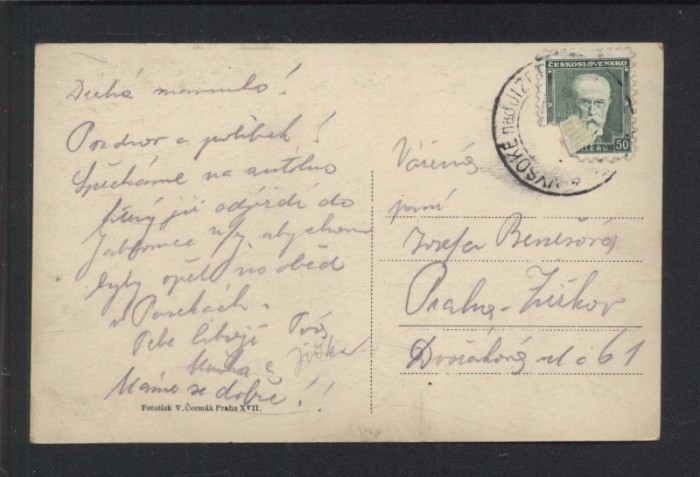 Drahá maminko!
Pozdrav a políbek!
Spěcháme na autobus
který již odjíždí do
Jablonce n/J, abychom
byly opět na oběd
v Pasekách.
Tebe líbají Tvá
a Jiřka
Máme se dobře!!
Fototisk V. Čermák Praha XVII.
VYSOKÉ nad JIZE
ČESKOSLOVENSKO
50
Vážená
paní
Josefa Benešová
Praha - Žižkov
Dvořákova ul č 61